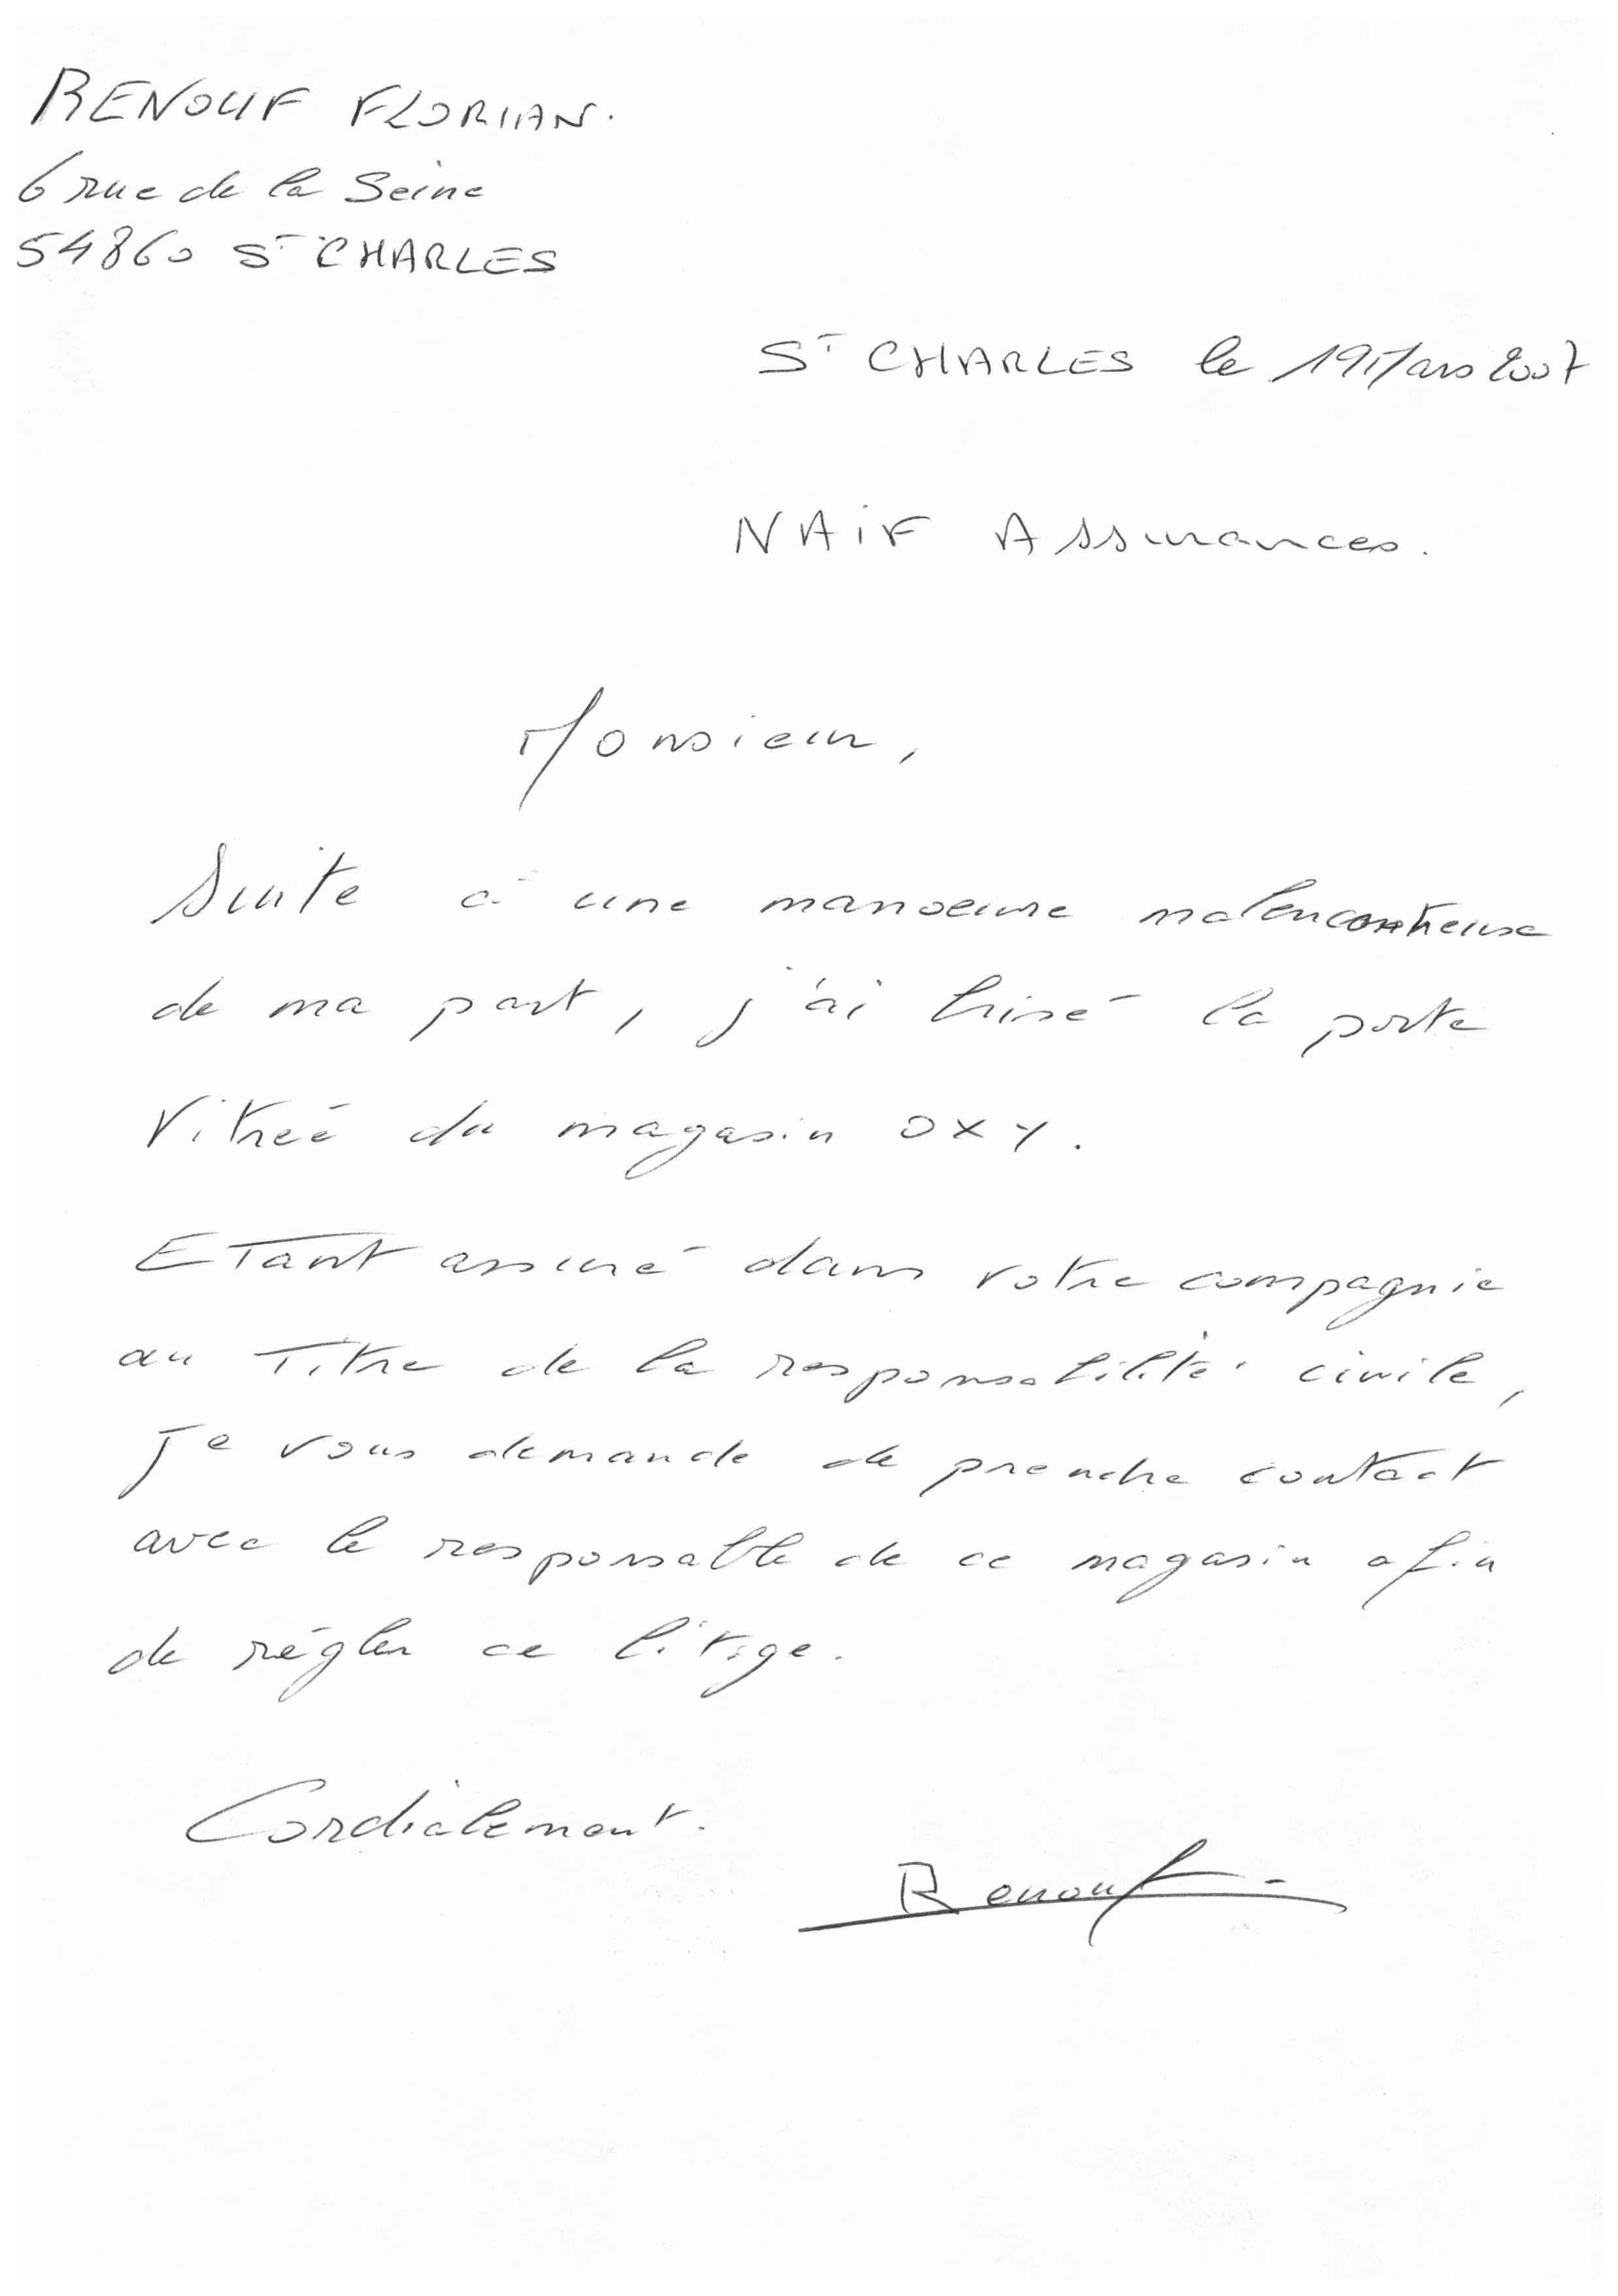 RENOUF FLORIAN.
6 rue de la Seine
54860 St CHARLES
St CHARLES le 19 Mars 2007
NAiF Assurances.
Monsieur,
Suite à une manoeuvre malencontreuse
de ma part, j'ai brisé la porte
Vitrée du magasin OXY.
Etant assuré dans votre compagnie
au Titre de la responsabilité civile,
je vous demande de prendre contact
avec le responsable de ce magasin afin
de régler ce litige.
Cordialement.
Renouf